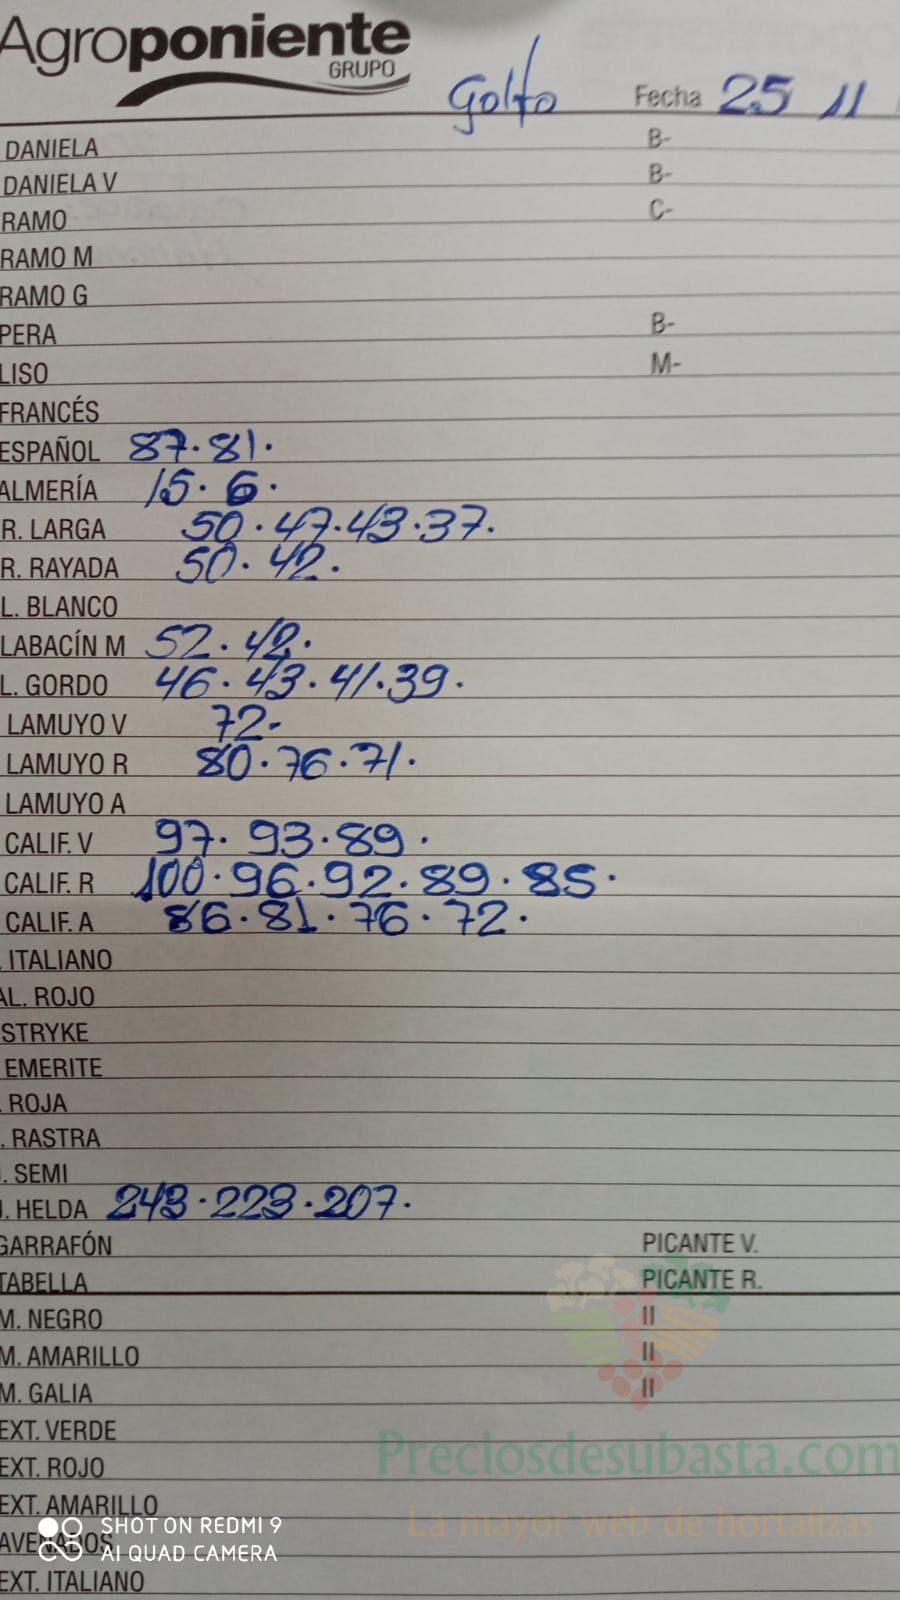 Agroponiente
GRUPO
Golfo Fecha 25 11
DANIELA B-
DANIELA V B-
RAMO C-
RAMO M
RAMO G
PERA B-
LISO M-
FRANCÉS
ESPAÑOL 87.81.
ALMERÍA 15.6.
R. LARGA 50.47.43.37.
R. RAYADA 50.42.
L. BLANCO
LABACÍN M 52.42.
L. GORDO 46.43.41.39.
LAMUYO V 72.
LAMUYO R 80.76.71.
LAMUYO A
CALIF. V 97.93.89.
CALIF. R 100.96.92.89.85.
CALIF. A 86.81.76.72.
. ITALIANO
AL. ROJO
STRYKE
EMERITE
. ROJA
. RASTRA
. SEMI
J. HELDA 243.223.207.
GARRAFÓN PICANTE V.
TABELLA PICANTE R.
M. NEGRO II
M. AMARILLO II
M. GALIA II
EXT. VERDE
Preciosdesubasta.com
EXT. ROJO
EXT. AMARILLO
La mayor web de hortalizas
SHOT ON REDMI 9
AVENADOS
AI QUAD CAMERA
EXT. ITALIANO